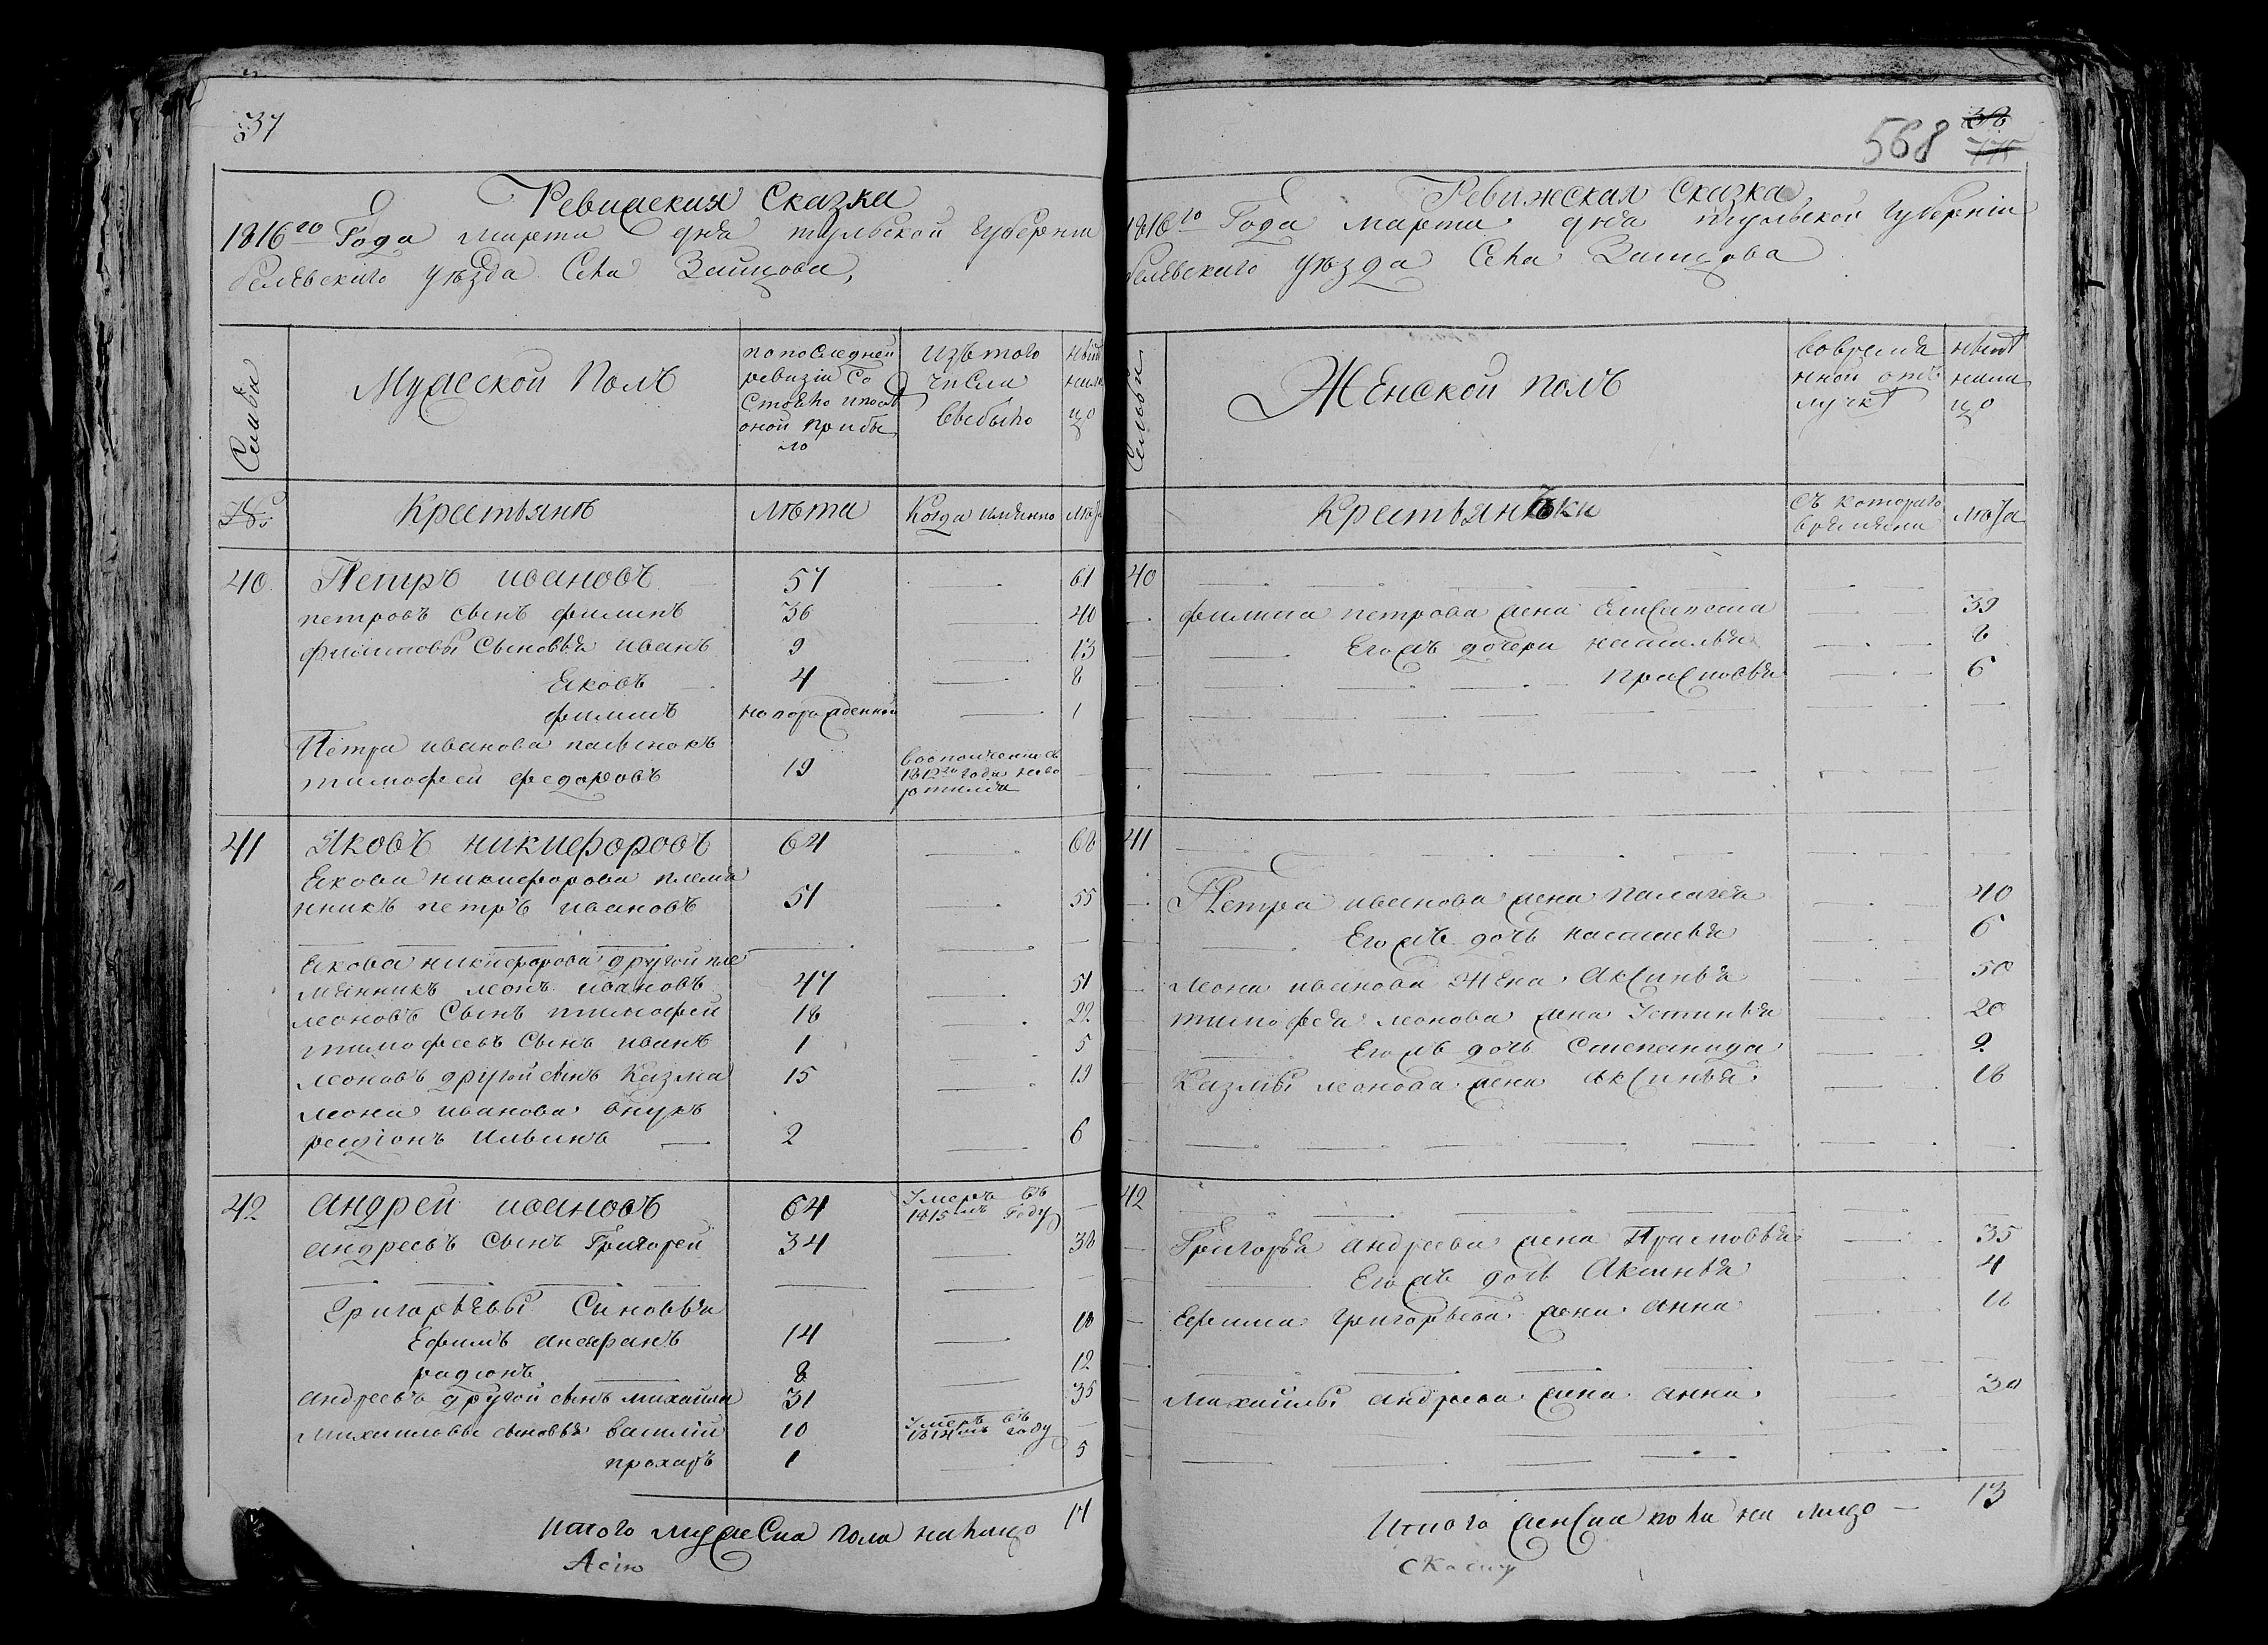 37
Ревижская Сказка
1816го Года марта дня тульской губерніи
белевскаго уѣзда Села Заицова,
Семьи
Мужеской Полъ
попоследней
ревизіи Со
стояло ипосл
оной прибы
ло
изътого
числа
выбыло
ныне
нали
цо
№
Крестьянѣ
лѣта
Когда имянно
лѣта
40 Петръ ивановъ 57 61
петровъ сынъ филипъ 36 40
филиповы Сыновья иванъ 9 13
Яковъ 4 8
филипъ новорожденной 1
Петра иванова пасынокъ
тимофеи федоровъ 19
вополченіи съ
1812го года
41 Яковъ никифоровъ 64 68
Якова никифорова племя
нникъ петръ ивановъ 51 55
Якова никифорова другой пле
мянникъ леонъ ивановъ 47 51
леоновъ Сынъ тимофей 18 22
тимофеевъ Сынъ иванъ 1 5
леоновъ другой сынъ Казма 15 19
леона иванова внукъ
родіонъ 2 6
42 андреи ивановъ 64
Умеръ въ
1815мъ Году
андреевъ Сынъ Григорей 34 38
Григорьевы Сыновья
Ефимъ 14 18
радионъ 8 12
андреевъ другой сынъ михаила 31 35
михаиловы сыновья василіи 10
Умеръ въ
1814мъ году
прохаръ 1 5
Итого мужеска пола налицо 17
568
38
775
Ревижская Сказка
1816го Года марта дня тульской губерніи
белевскаго уѣзда Села Заицова
Семьи
Женской полъ
вовремя
нной отъ
лучкѣ
ныне
нали
цо
Крестьянѣки
съ котораго
времяни
лѣта
40
филипа петрова жена 39
Егожъ дочери наталья 8
Прасковья 6
41
Петра иванова жена палагея 40
Егожъ дочь настасья 6
леона иванова Жена Аксинья 50
тимофея леонова жена Устинья 20
Егожъ дочь Степанида 2
Казмы леонова жена Аксинья 18
42
Григорья андреева жена Прасковья 35
Егожъ дочь Аксинья 4
Ефима григорьева жена Анна 18
Михаилы андреева жена анна 30
Итого женска пола на лицо 13
скаску